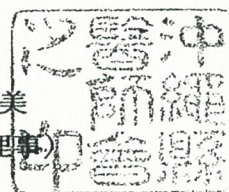 沖繩縣
醫師會
之印
美
理事)